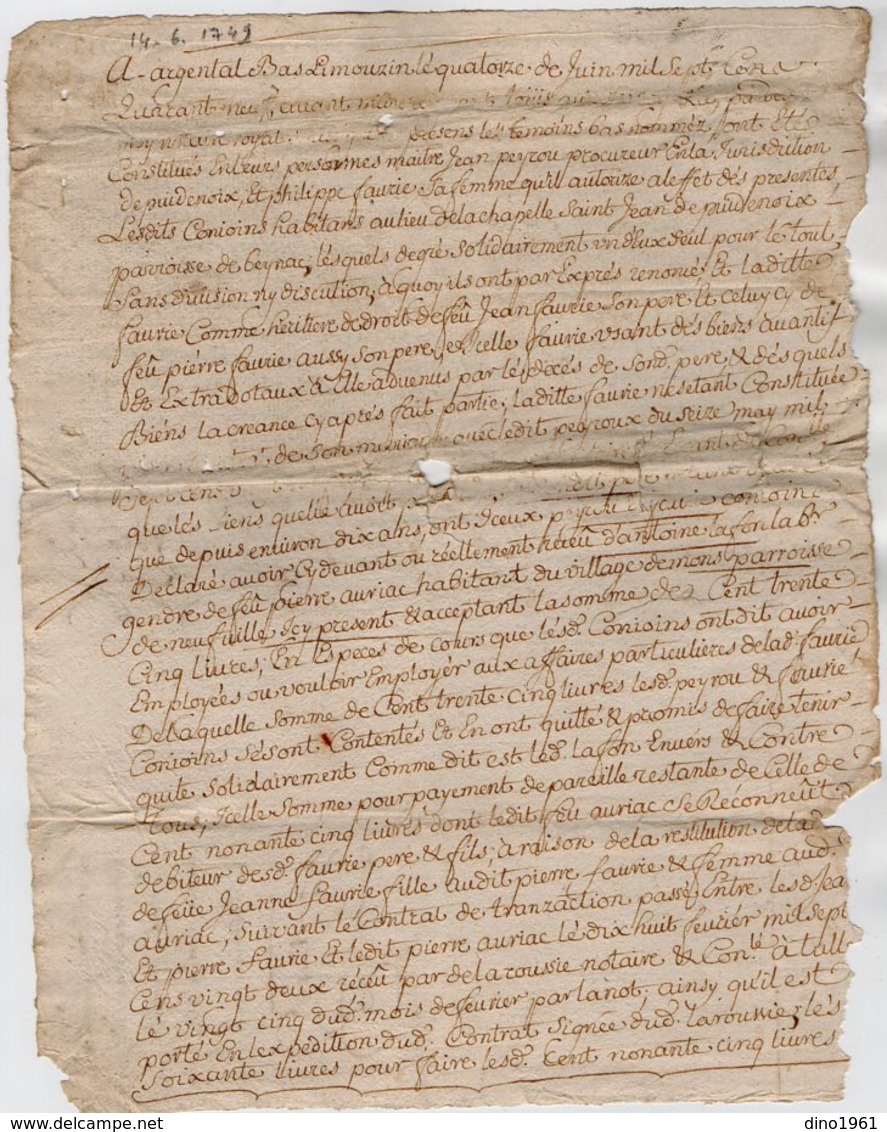 14. 6. 1749
A argental Bas Limouzin lé quatorze de Juin mil Sept Cens
Quarant neuf, avant
moy notaire royal presens les temoins bas nomméz, sont Et
Constitués En leurs persormes maitre Jean peyrou procureur En la Jurisdiction
de puidenoix, Et philippe faurie Sa femme qu'il autorize a leffet dés presentes,
Lesdits Conioins habitans au lieu de la chapelle Saint Jean de puidenoix
parroisse de beynac, lésquels de gré solidairement un d'Eux seul pour le tout,
Sans division ny discution, a quoy ils ont par Exprés renoncé, Et laditte
faurie Comme héritiere de droit de feû Jean faurie son pere Et Celuy cy de
feû pierre faurie aussy son pere, jcelle faurie usant dés biens avantif
Et Extradotaux à Elle advenus par lés décés de sond. pere & désquels
Biéns la créance cy aprés fait partie, laditte faurie ne setant Constituée
de son mariage avec ledit peyroux du seize may mil
Sept cens
que lés siens quelle avoit
que depuis environ dix ans, ont d'eux conioins
Declaré avoir Cy devant ou réellement réceû d'antoine lafon labr.
gendre de feû pierre auriac habitant du village de mons parroisse
de neufville, Jcy présent & acceptant la somme de Cent trente
Cinq livres, En Espéces de cours que lésd. Conioins ont dit avoir
Employées ou vouloir Employér aux affaires particulieres de lad. faurie
De laquelle somme de Cent trente Cinq livres lesd. peyrou & faurie
Conioins sésont Contentés Et En ont quitté & promis de faire tenir
quite solidairement Comme dit est led. lafon Envérs & Contre
Tous, Jcelle somme pour payement de pareille restante de Celle de
Cent nonante cinq livres dont ledit feu auriac se Réconneût
debiteur desd. faurie pere & fils, a raison de la restitution de la d.
de feüe Jeanne faurie fille audit pierre faurie & femme aud.
auriac, suivant lé Contrat de tranzaction passé Entre lesd. Jea
Et pierre faurie Et ledit pierre auriac lé dix huit fevriér mil sept
Cens vingt deux récéû par de laroussie notaire & Conlé à tulle
lé vingt cinq dud. mois de fevrier par lanot, ainsy qu'il est
porté En lexpédition dud. Contrat signée dud. laroussie, lés
soixante livres pour faire lesd. Cent nonante cinq livres
dino1961